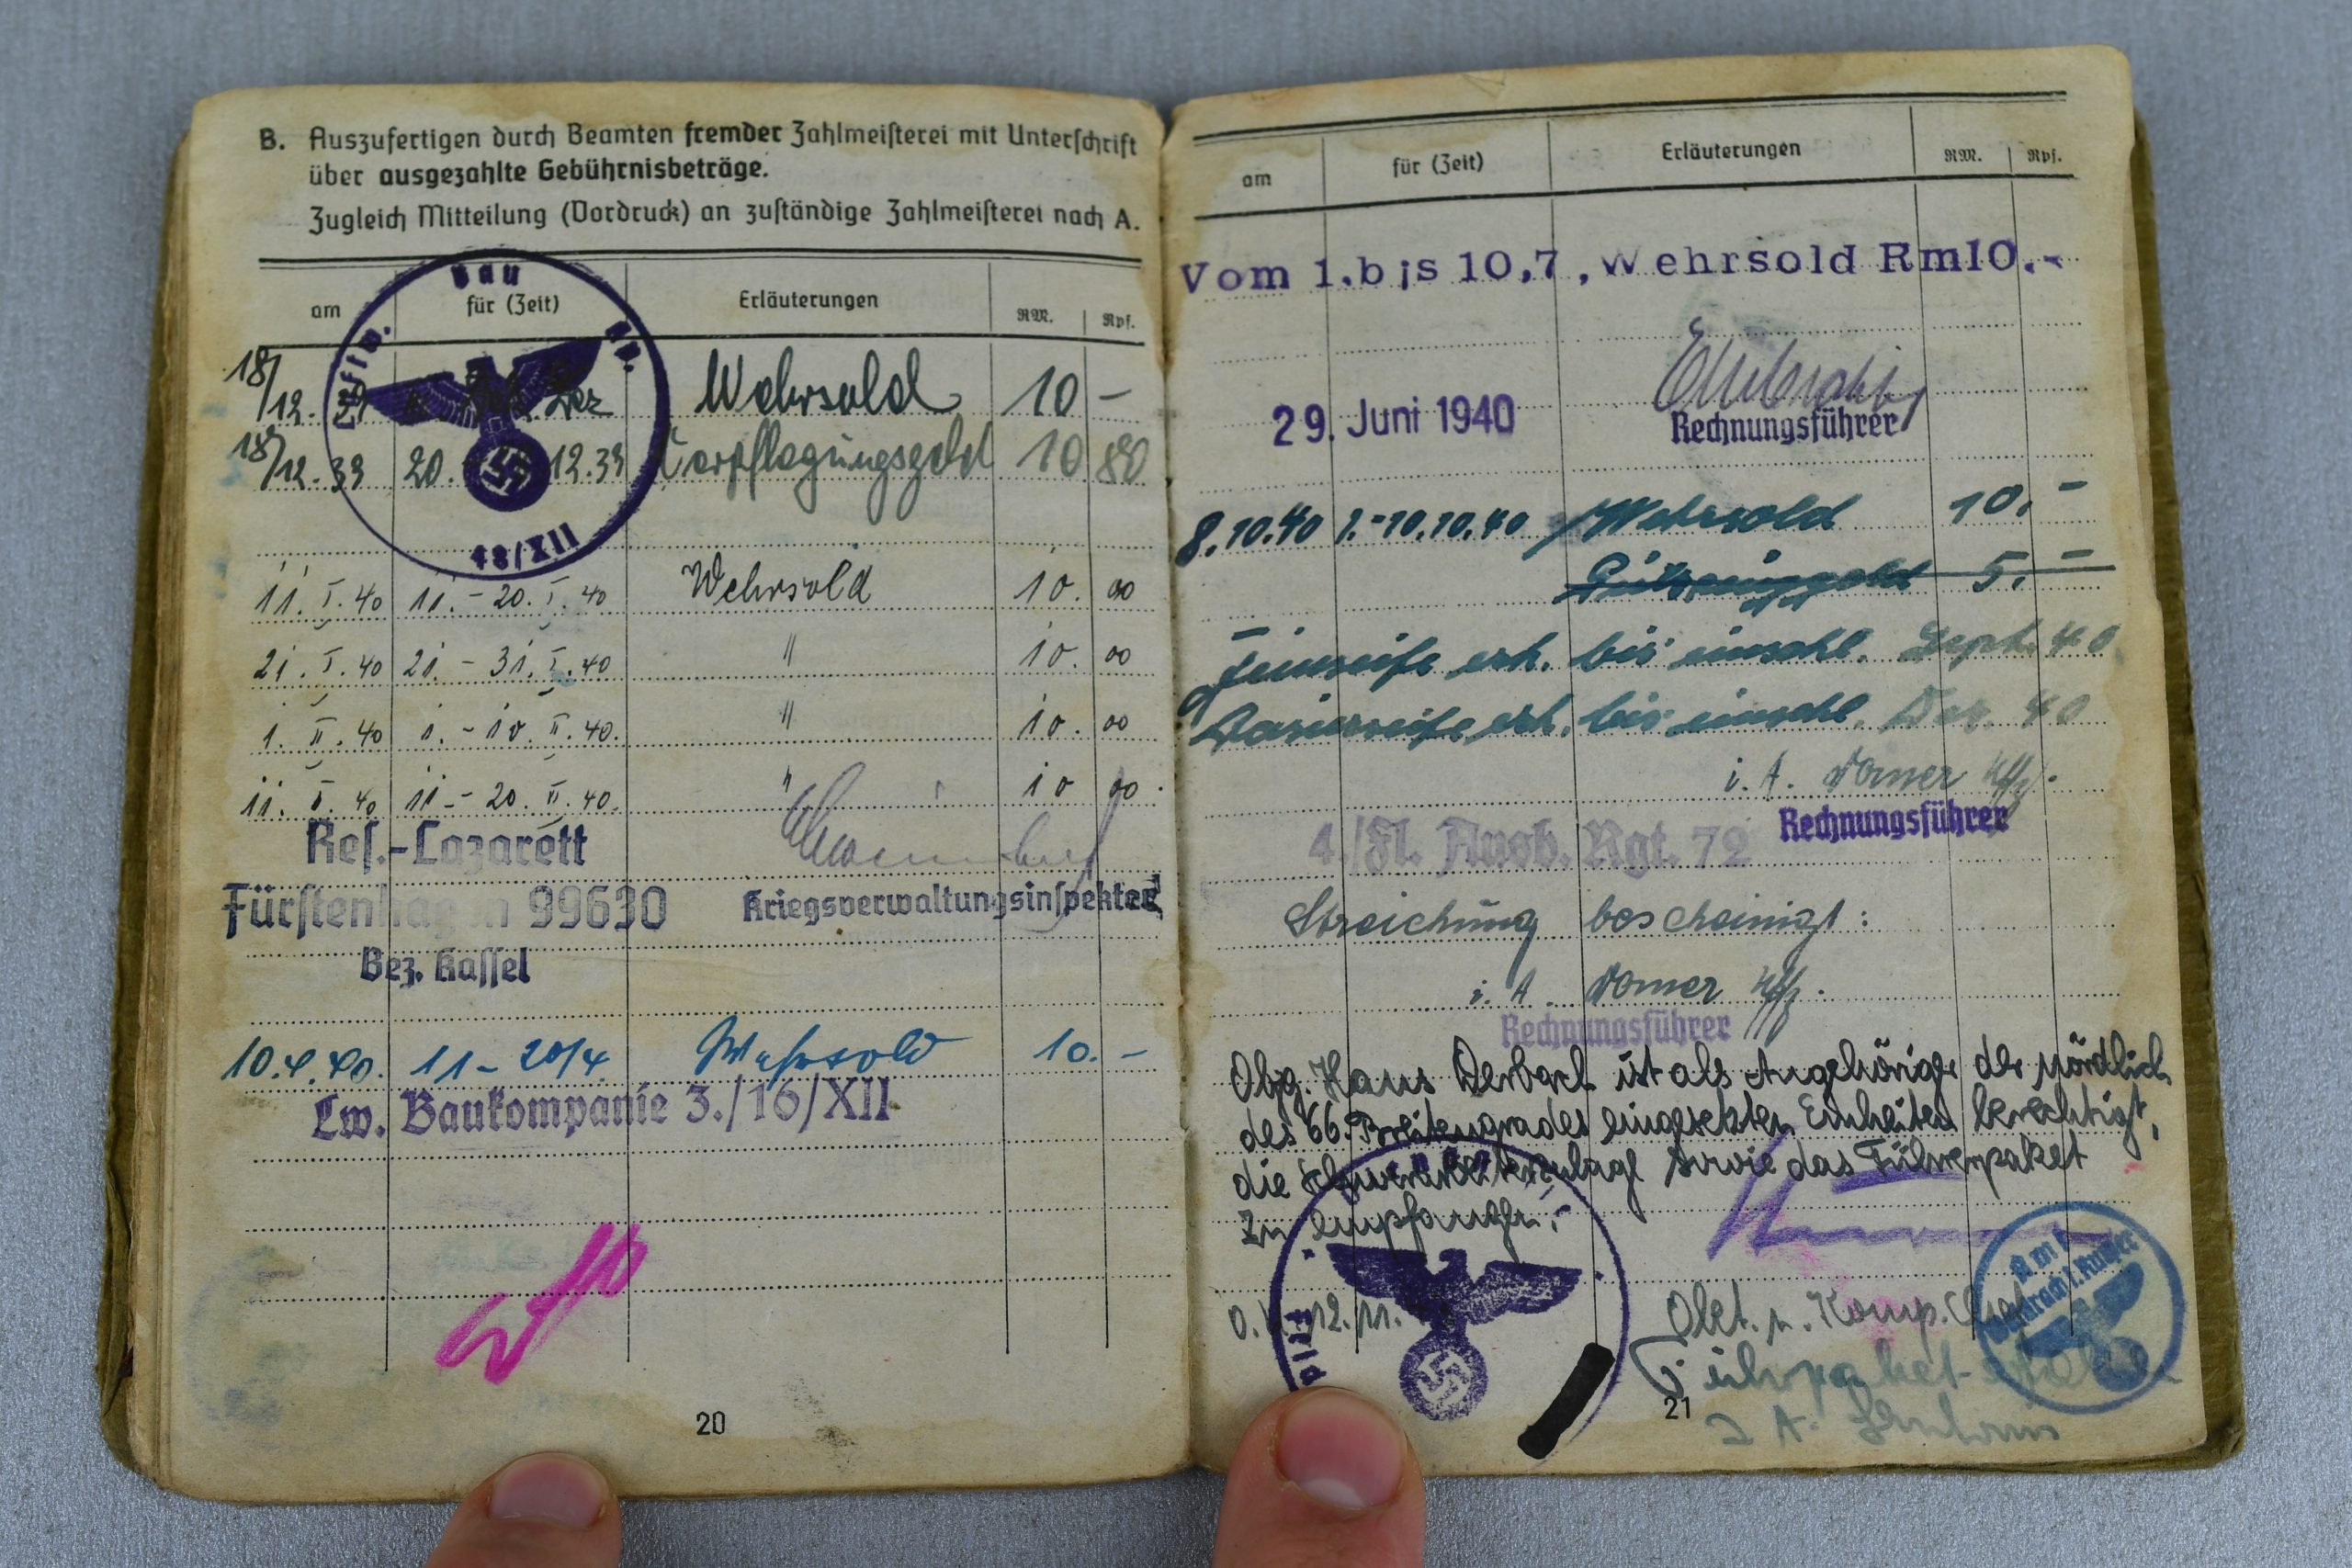 B. Auszufertigen durch Beamten fremder Zahlmeisterei mit Unterschrift
über ausgezahlte Gebührnisbeträge.
Zugleich Mitteilung (Vordruck) an zuständige Zahlmeisterei nach A.
am für (Zeit) Erläuterungen RM. Rpf.
Bau
48/XII
18/12. Dez Wehrsold 10 –
18/12.39 20. 12.39 Verpflegungsgeld 10 80
11. I. 40 11. – 20. I. 40 Wehrsold 10. 00
21. I. 40 21. – 31. I. 40 " 10. 00
1. II. 40 1. – 10. II. 40. " 10. 00
11. II. 40 11 – 20. II. 40. " 10 00.
Res.-Lazarett
Fürstenhagen 99630
Bez. Kassel
Kriegsverwaltungsinspektor
10.4.40. 11 – 20/4 Wehrsold 10. –
Lw. Baukompanie 3./16/XII
20
am für (Zeit) Erläuterungen RM. Rpf.
Vom 1.bis 10,7, Wehrsold Rm10.-
29. Juni 1940
Rechnungsführer
8.10.40 1.-10.10.40 Wehrsold 10. –
5. –
erh. bis einschl. Sept. 40
erh. bis einschl. Dez. 40
i. A. Uffz.
Rechnungsführer
4./Fl. Ausb. Rgt. 72
Streichung bescheinigt:
i. A. Uffz.
Rechnungsführer
Obg. Hans ist als Angehöriger der nördlich
des 66. Breitengrades eingesetzten Einheiten berechtigt,
die Schwerarbeiterzulage sowie das Führerpaket
zu empfangen.
12.11.
Feld
Oblt. u. Komp. Chef
Amt
21